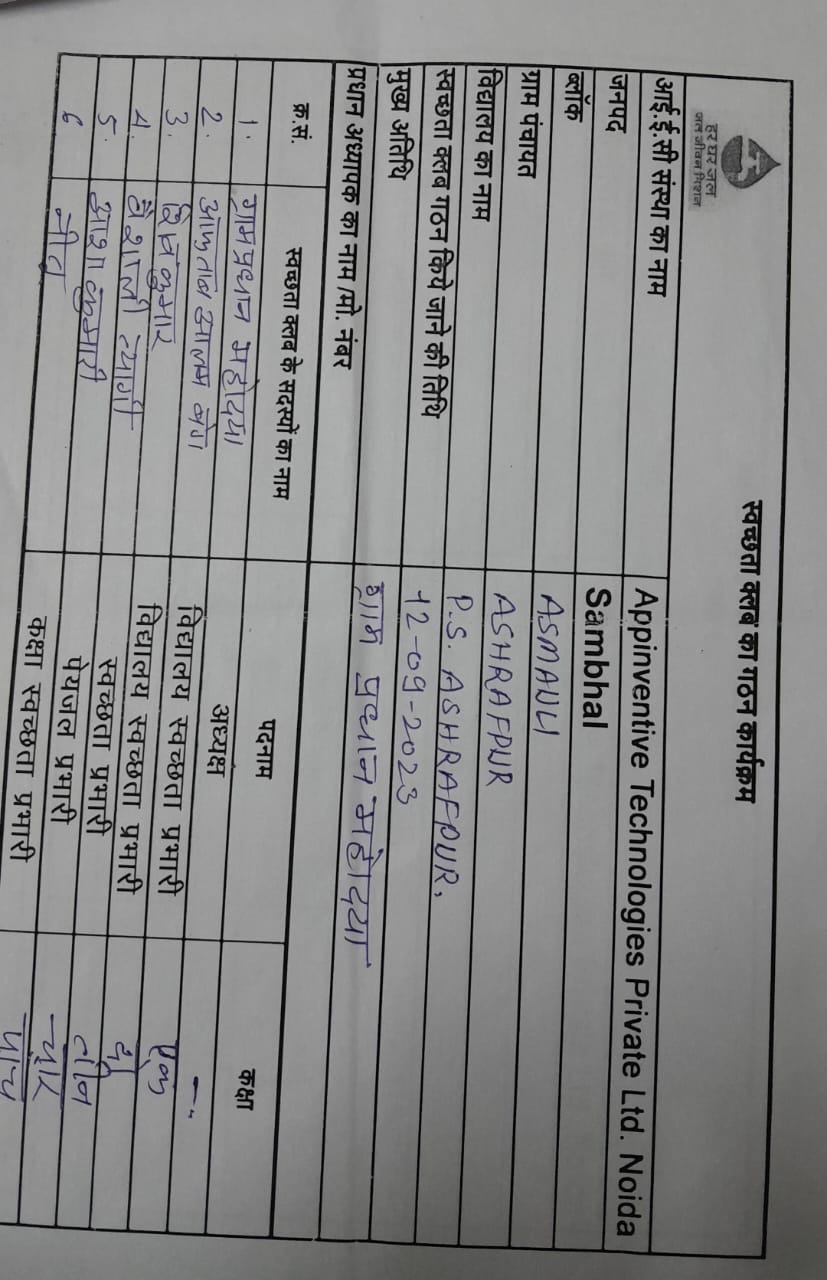 हर घर जल
जल जीवन मिशन
स्वच्छता क्लब का गठन कार्यक्रम
आई.ई.सी संस्था का नाम Appinventive Technologies Private Ltd. Noida
जनपद Sambhal
ब्लॉक ASMAULI
ग्राम पंचायत ASHRAFPUR
विद्यालय का नाम P.S. ASHRAFPUR.
स्वच्छता क्लब गठन किये जाने की तिथि 12-09-2023
मुख्य अतिथि ग्राम प्रधान महोदया
प्रधान अध्यापक का नाम /मो. नंबर
क्र.सं. स्वच्छता क्लब के सदस्यों का नाम पदनाम कक्षा
1. ग्राम प्रधान महोदया अध्यक्ष -
2. आफताब आलम बेग विद्यालय स्वच्छता प्रभारी
3. कुमार विद्यालय स्वच्छता प्रभारी एक
4. वैशाली त्यागी स्वच्छता प्रभारी दो
5. आशा कुमारी पेयजल प्रभारी तीन
6 कक्षा स्वच्छता प्रभारी चार
पांच